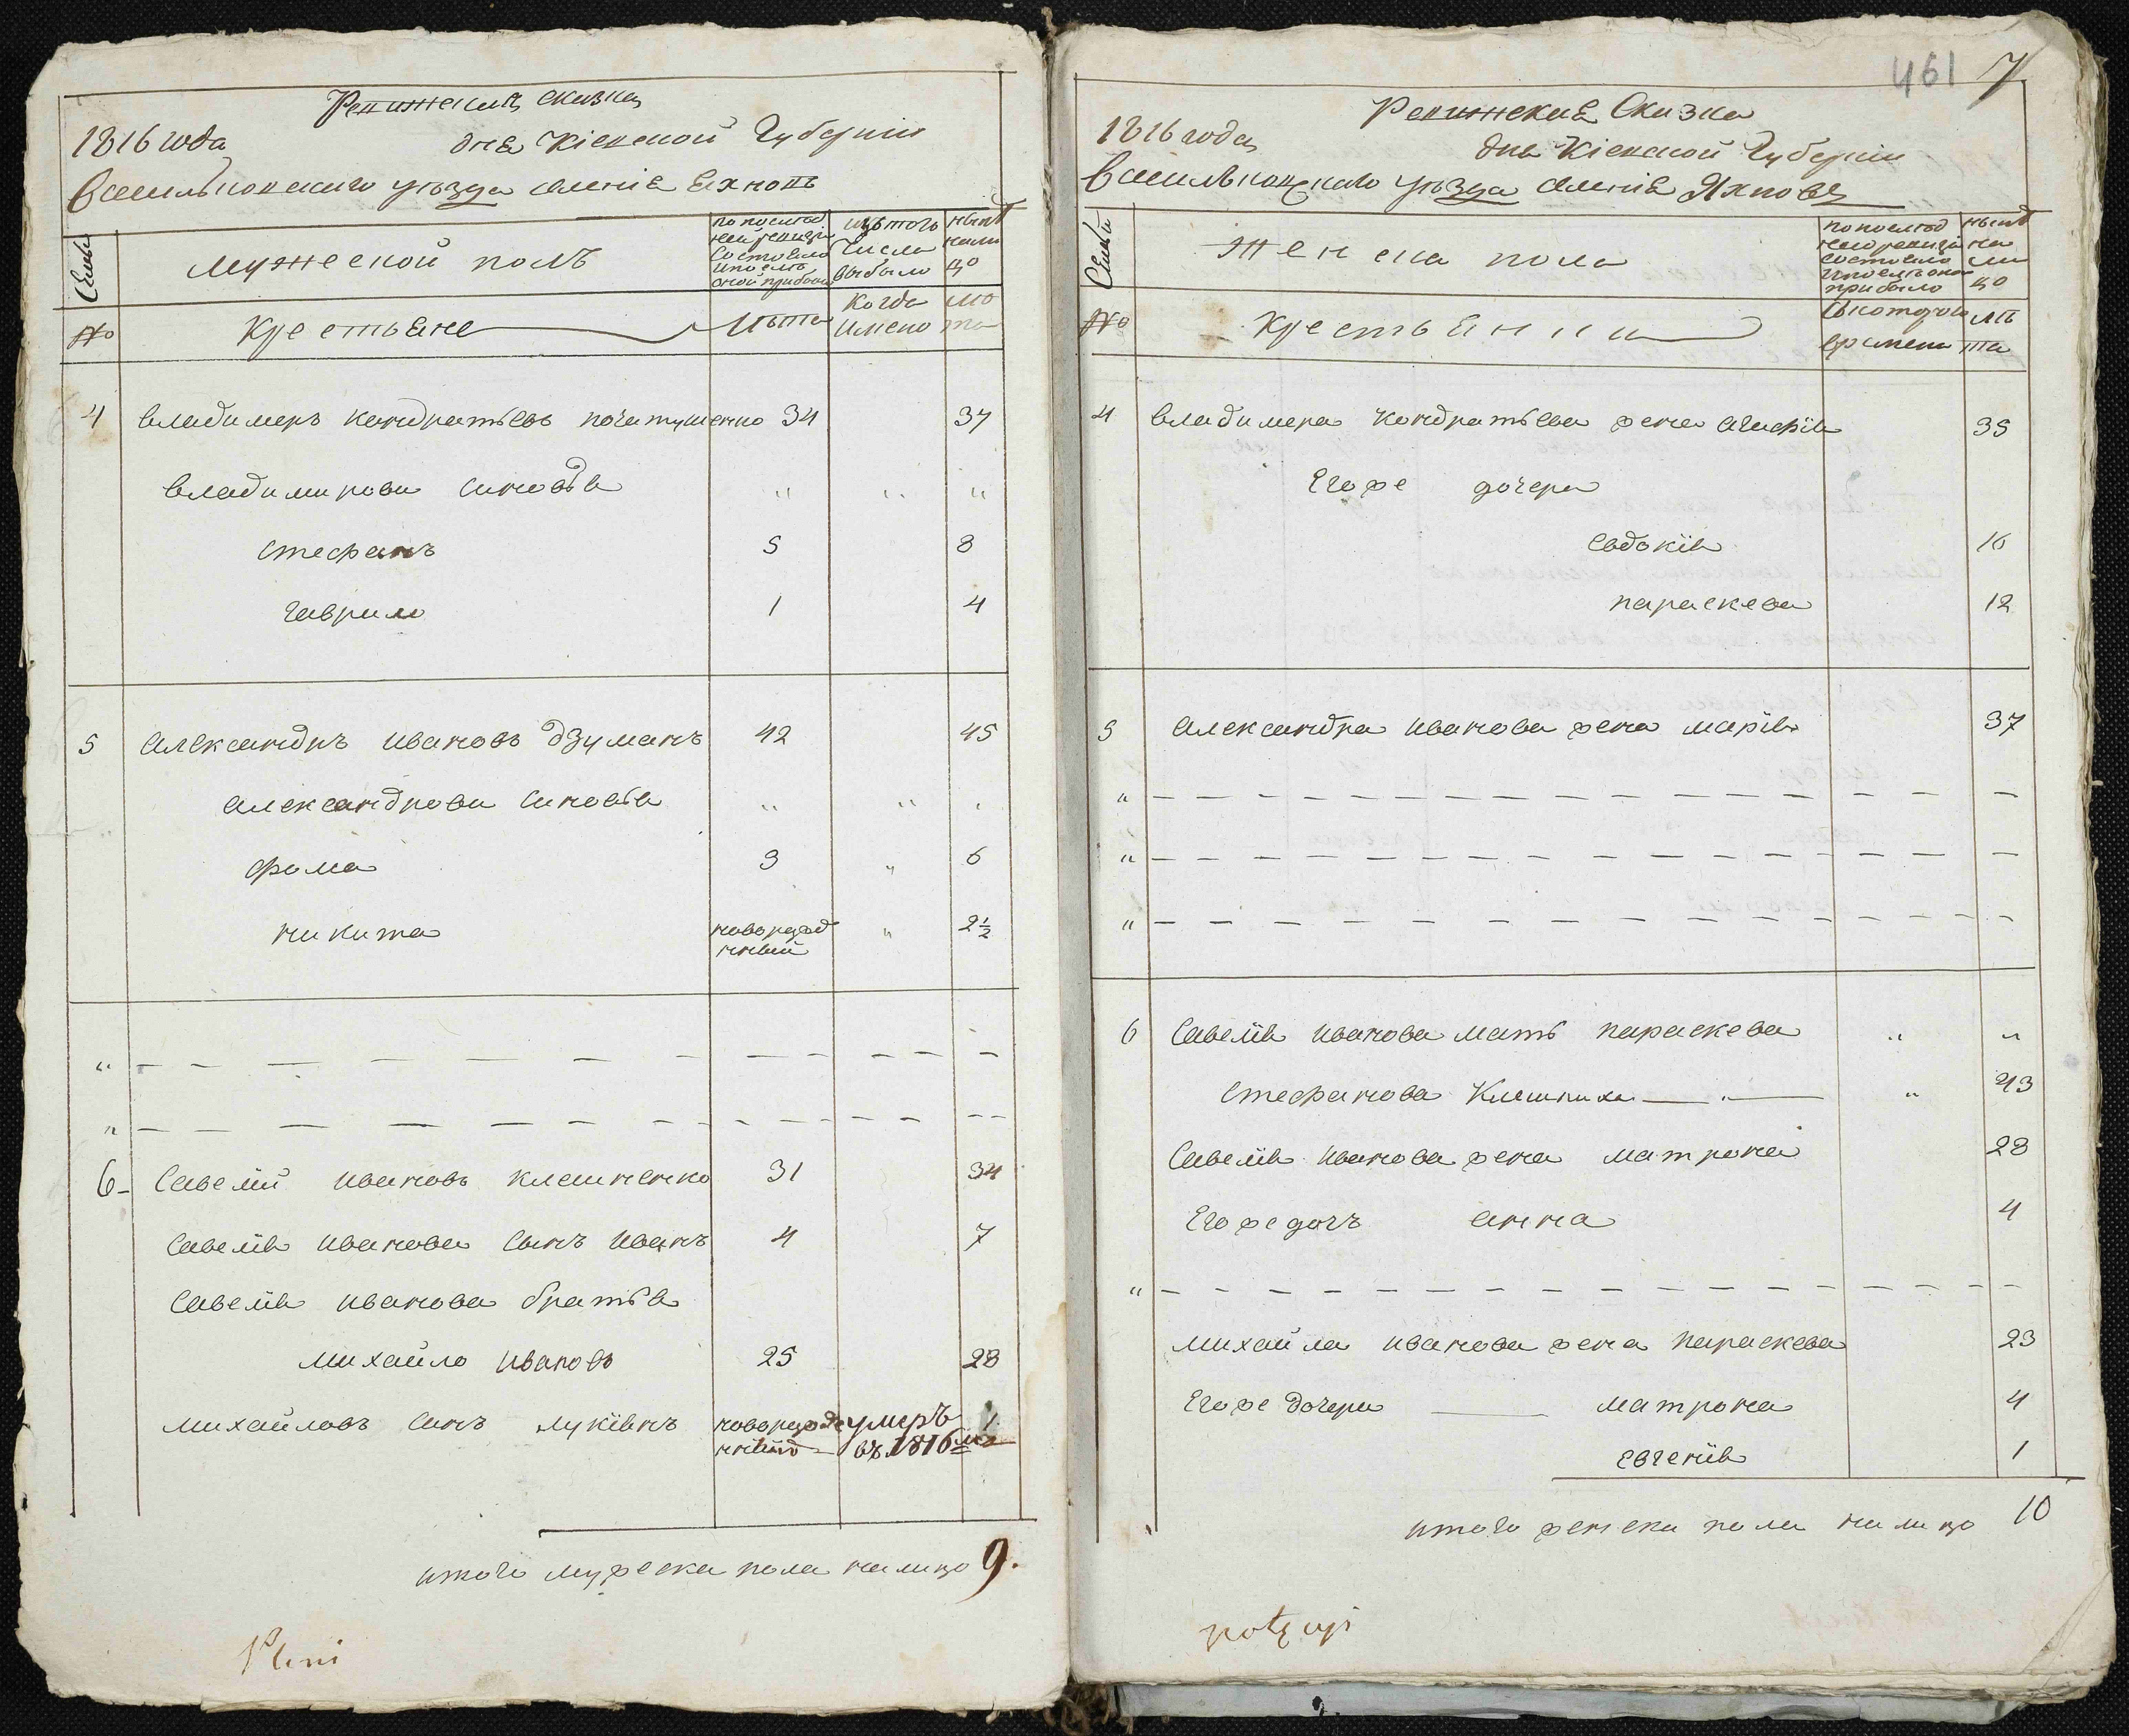 Ревижская сказка
1816 года
дня Кіевской Губерніи
Васильковскаго уѣзда селенія Яхновъ
Семьи
Мужеской полъ
по послѣд
ней ревизіи
состояло
и послѣ
оной прибыло
изъ того
числа
выбыло
нынѣ
нали
цо
№
Крестьяне
Лѣта
когда
имено
лѣ
та
4 владимеръ кондратьевъ 34 37
владимирови синовья " " "
стефанъ 5 8
гаврило 1 4
5 александръ ивановъ дзуманъ 42 45
александрови синовья " " "
фома 3 " 6
никита новорожд " 2½
нный
" — — — — — — — — — —
" — — — — — — — — — —
6 савелій ивановъ клешненко 31 34
савелія иванова сынъ иванъ 4 7
савелія иванова братья
михайло ивановъ 25 28
михайловъ синъ лукіянъ новорожде умеръ
нный въ 1816
итого мужеска пола налицо 9.
461 7
Ревижская Сказка
1816 года
дня Кіевской Губерніи
Васильковскаго уѣзда селенія Яхновъ
Семьи
Женска пола
по послѣд
ней ревизіи
состояло
и послѣ оной
прибыло
нынѣ
на
ли
цо
№
Крестьянки
съ которого
времени
лѣ
та
4 владимера кондратьева жена агафія 35
Его же дочери
евдокія 16
параскева 12
5 александра иванова жена марія 37
" — — — — — — — — — —
" — — — — — — — — — —
" — — — — — — — — — —
6 савелія иванова мать параскева " "
стефанова — " — " 43
савелія иванова жена матрона 28
Его же дочъ анна 4
" — — — — — — — — — —
михайла иванова жена параскева 23
Его же дочери — матрона 4
евгенія 1
итого женска пола налицо 10